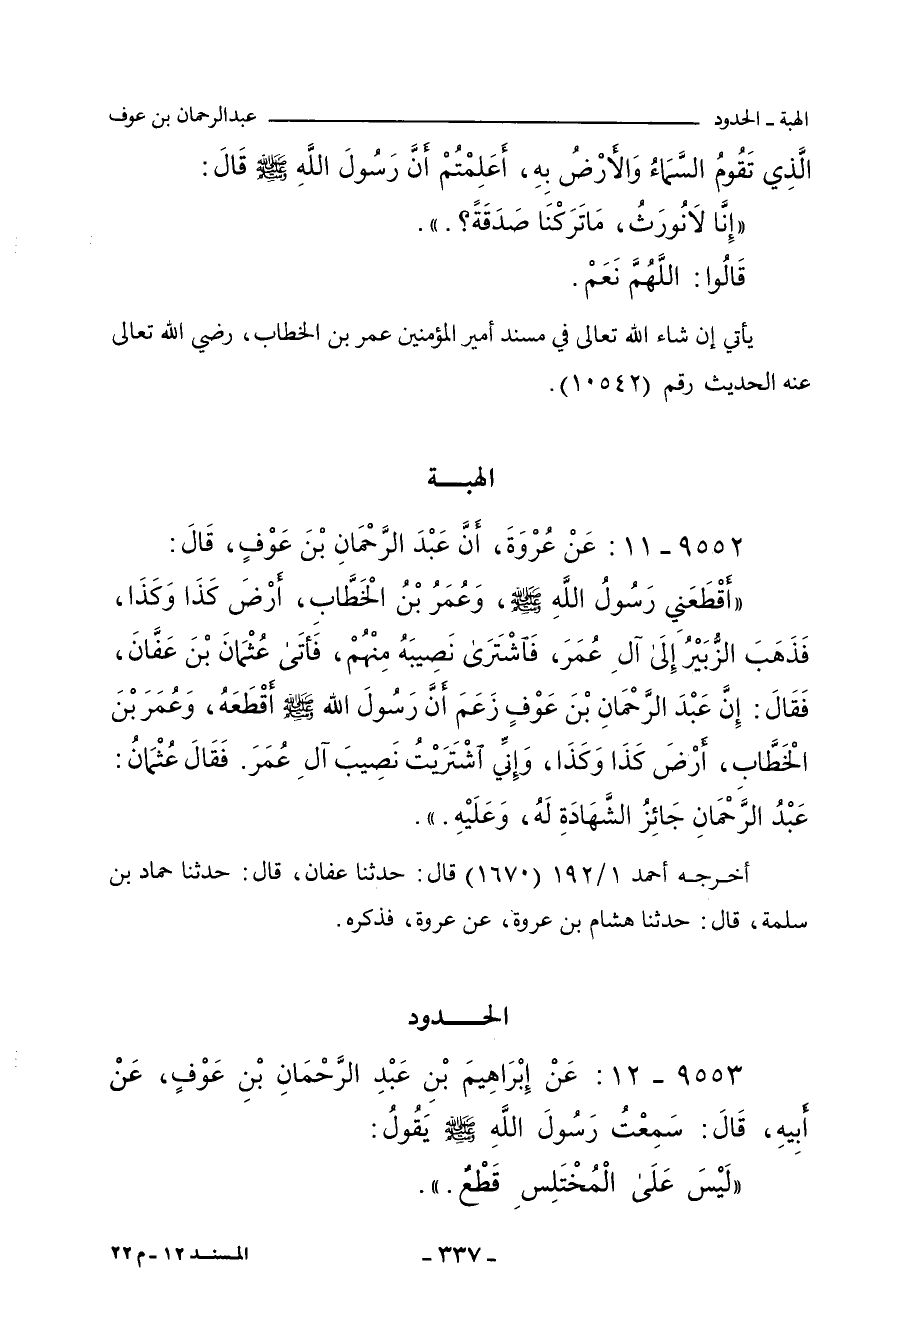 الهبة ـ الحدود ـــــــــ عبدالرحمان بن عوف
الَّذِي تَقُومُ السَّمَاءُ وَالأَرْضُ بِهِ، أَعَلِمْتُمْ أَنَّ رَسُولَ اللَّهِ ﷺ قَالَ:
«إِنَّا لَانُورَثُ، مَاتَرَكْنَا صَدَقَةً؟.».
قَالُوا: اللَّهُمَّ نَعَمْ.
يأتي إن شاء الله تعالى في مسند أمير المؤمنين عمر بن الخطاب، رضي الله تعالى
عنه الحديث رقم (١٠٥٤٢).
الهبـــة
٩٥٥٢ ـ ١١: عَنْ عُرْوَةَ، أَنَّ عَبْدَ الرَّحْمَانِ بْنَ عَوْفٍ، قَالَ:
«أَقْطَعَنِي رَسُولُ اللَّهِ ﷺ، وَعُمَرَ بْنُ الْخَطَّابِ، أَرْضَ كَذَا وَكَذَا،
فَذَهَبَ الزُّبَيْرُ إِلَىٰ آلِ عُمَرَ، فَٱشْتَرَىٰ نَصِيبَهُ مِنْهُمْ، فَأَتَىٰ عُثْمَانَ بْنَ عَفَّانَ،
فَقَالَ: إِنَّ عَبْدَ الرَّحْمَانِ بْنَ عَوْفٍ زَعَمَ أَنَّ رَسُولَ الله ﷺ أَقْطَعَهُ، وَعُمَرَ بْنَ
الْخَطَّابِ، أَرْضَ كَذَا وَكَذَا، وَإِنِّي ٱشْتَرَيْتُ نَصِيبَ آلِ عُمَرَ. فَقَالَ عُثْمَانُ:
عَبْدُ الرَّحْمَانِ جَائِزُ الشَّهَادَةِ لَهُ، وَعَلَيْهِ.».
أخـرجـه أحمد ١٩٢/١ (١٦٧٠) قال: حدثنا عفان، قال: حدثنا حماد بن
سلمة، قال: حدثنا هشام بن عروة، عن عروة، فذكره.
الحـــدود
٩٥٥٣ ـ ١٢: عَنْ إِبْرَاهِيمَ بْنِ عَبْدِ الرَّحْمَانِ بْنِ عَوْفٍ، عَنْ
أَبِيهِ، قَالَ: سَمِعْتُ رَسُولَ اللَّهِ ﷺ يَقُولُ:
«لَيْسَ عَلَىٰ الْمُخْتَلِسِ قَطْعٌ.».
ـ ٣٣٧ ـ المسند ١٢ ـ م٢٢